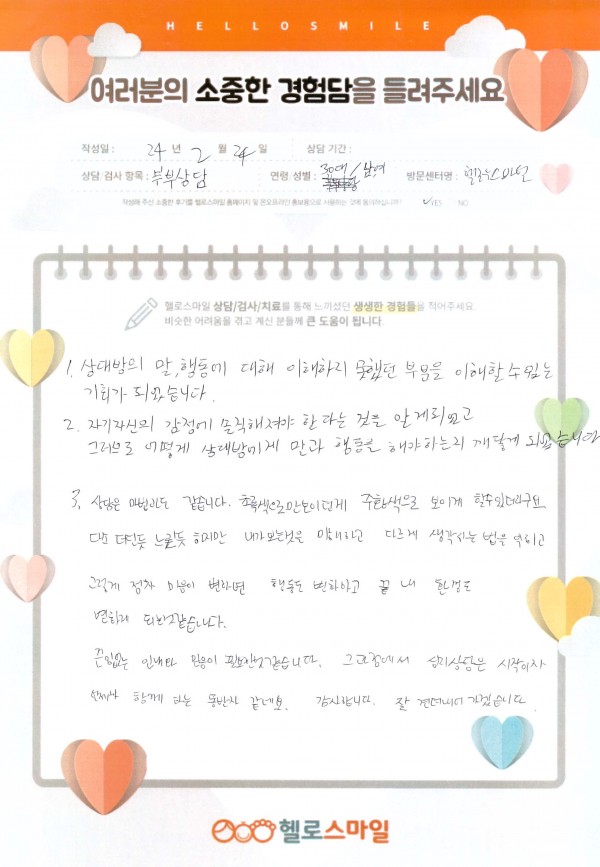 HELLOSMILE
여러분의 소중한 경험담을 들려주세요
작성일 : 24 년 2 월 24 일 상담 기간 :
상담 검사 항목 : 부부상담 연령, 성별 : 30대 / 남여 방문센터명 : 헬로스마일
작성해 주신 소중한 후기를 헬로스마일 홈페이지 및 온오프라인 홍보용으로 사용하는 것에 동의하십니까? ✓YES NO
헬로스마일 상담/검사/치료를 통해 느끼셨던 생생한 경험들을 적어주세요.
비슷한 어려움을 겪고 계신 분들께 큰 도움이 됩니다.
1. 상대방의 말, 행동에 대해 이해하지 못했던 부분을 이해할 수 있는
기회가 되었습니다.
2. 자기자신의 감정에 솔직해져야 한다는 것을 알게되었고
그러므로 어떻게 상대방에게 말과 행동을 해야하는지 깨닫게 되었습니다
3. 상담은 마법과도 같습니다. 초록색으로만 보이던게 주황색으로 보이게 할수있더라구요
다만 더딘듯 느릴듯 하지만 내가 보는것을 이해하고 다르게 생각하는 법을 익히고
그렇게 점차 마음이 변하면 행동도 변화하고 끝내 환경도
변하게 되는것같습니다.
끊임없는 인내와 마음이 필요한것같습니다. 그 과정에서 심리상담은 시작이자
언제나 함께 하는 동반자 같네요. 감사합니다. 잘 견뎌나가겠습니다.
헬로스마일